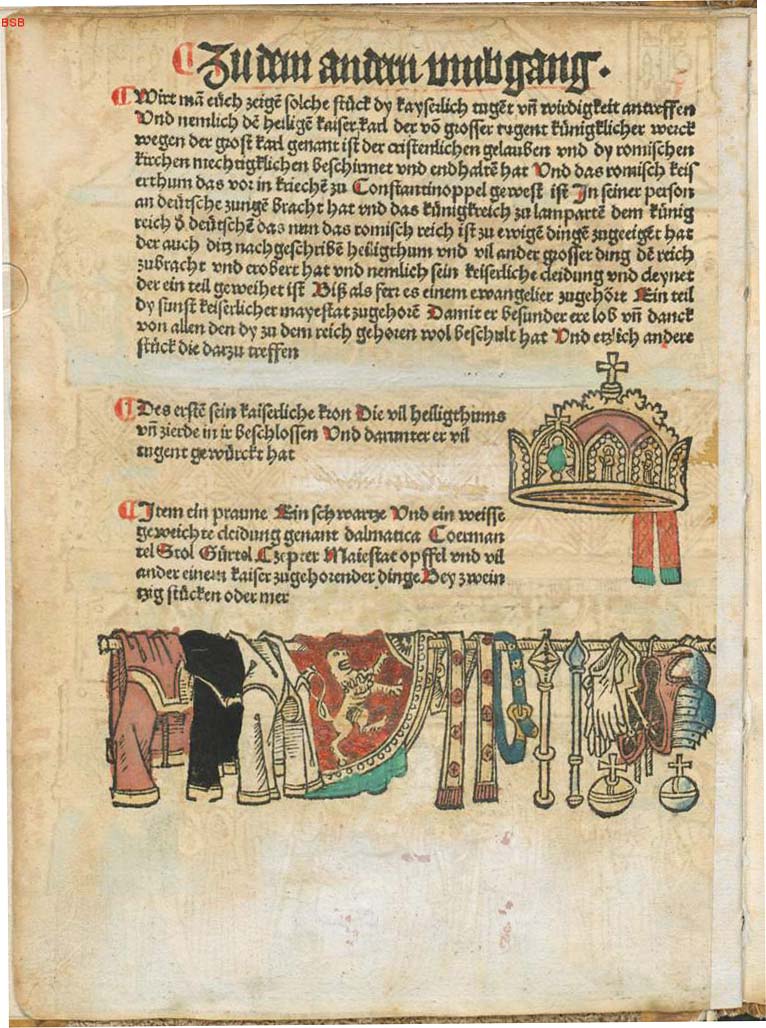 BSB
Zu dem andern vmbgang.
Wirt mā eüch zeigē solche stück dy kayserlich tugēt vn̄ wirdigkeit antreffen
Vnd nemlich dē heiligē kaiser karl der vō grosser tugent künigklicher werck
wegen der groſt karl genant iſt der criſtenlichen gelauben vnd dy romiſchen
kirchen mechtigklichen beschirmet vnd enthaltē hat Vnd das romisch keis
erthum das vor in kriechē zu Constantinoppel gewest ist In seiner person
an deütsche zungē bracht hat vnd das künigkreich zu lampartē dem künig
reich d̄ deütschē das nun das romisch reich ist zu ewigē dingē zugeeigēt hat
der auch ditz nachgeschribē heiligthum vnd vil ander grosser ding dē reich
zubracht vnd erobert hat vnd nemlich sein keiserliche cleidung vnd cleynet
der ein teil geweihet ist Biß als ferr es einem ewangelier zugehört Ein teil
dy sunst keiserlicher mayestat zugehorē Damit er besunder ere lob vn̄ danck
von allen den dy zu dem reich gehoren wol beschult hat Vnd etzlich andere
stück die darzu treffen
Des erstē sein kaiserliche kron Die vil heiligthums
vn̄ zierde in ir beschlossen Vnd darunter er vil
tugent gewürckt hat
Item ein praune Ein schwartze Vnd ein weisse
geweichte cleidung genant dalmatica Coerman
tel Stol Gürtel Czepter Maiestat opffel vnd vil
ander einem kaiser zugehorender dinge Bey zwein
tzig stücken oder mer